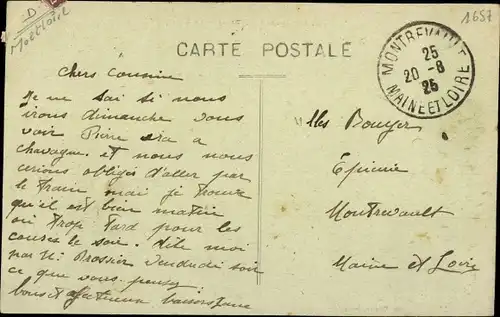 D
1657
CARTE POSTALE
MONTREVAULT
25
20-8
25
MAINE ET LOIRE
Chers Cousine
Je ne sai si nous
irons dimanche vous
voir Pierre va a
chavagne. et nous nous
serions obligés d'aller par
le train mai je trouve
qu'il est bien matin
où trop tard pour les
courses le soir. dite moi
par Mr Brossier vendredi soir
ce que vous pensez
bons et affectueux baisers
Mlles Bouyer
Epicerie
Montrevault
Maine et Loire